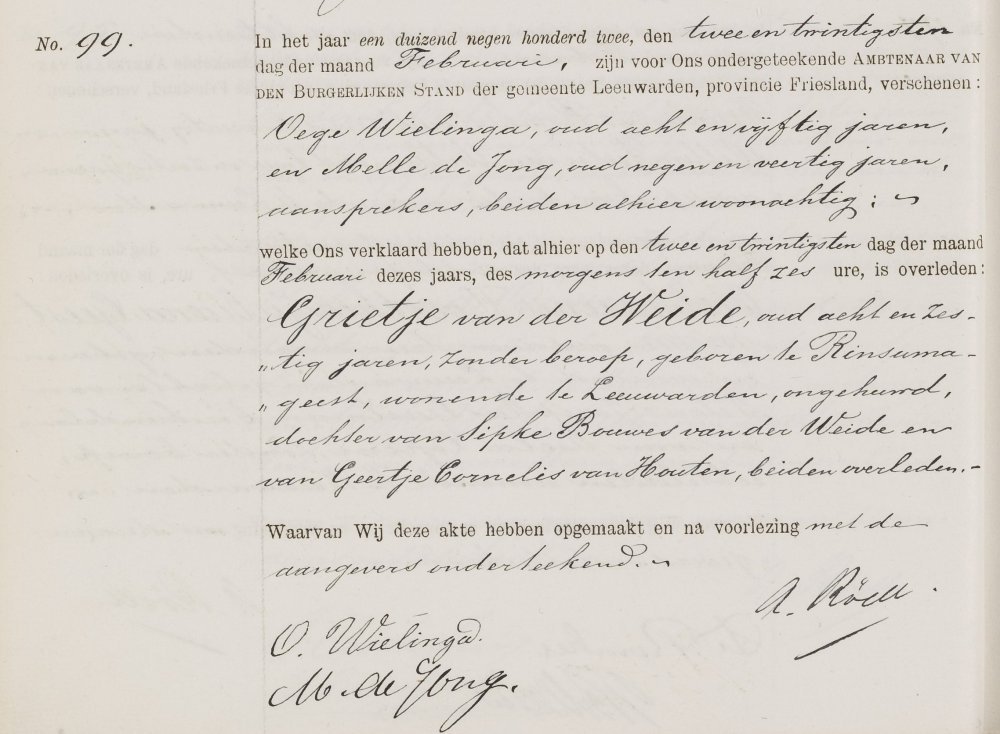 No. 99.
In het jaar een duizend negen honderd twee, den twee en twintigsten
dag der maand Februari, zijn voor Ons ondergeteekende AMBTENAAR VAN
DEN BURGERLIJKEN STAND der gemeente Leeuwarden, provincie Friesland, verschenen:
Oege Wielinga, oud acht en vijftig jaren,
en Melle de Jong, oud negen en veertig jaren,
aansprekers, beiden alhier woonachtig;
welke Ons verklaard hebben, dat alhier op den twee en twintigsten dag der maand
Februari dezes jaars, des morgens ten half zes ure, is overleden:
Grietje van der Weide, oud acht en zes-
„tig jaren, zonder beroep, geboren te Rinsuma-
„geest, wonende te Leeuwarden, ongehuwd,
dochter van Sipke Bouwes van der Weide en
van Geertje Cornelis van Houten, beiden overleden.-
Waarvan Wij deze akte hebben opgemaakt en na voorlezing met de
aangevers onderteekend.
A. Röell
O. Wielinga.
M. de Jong.